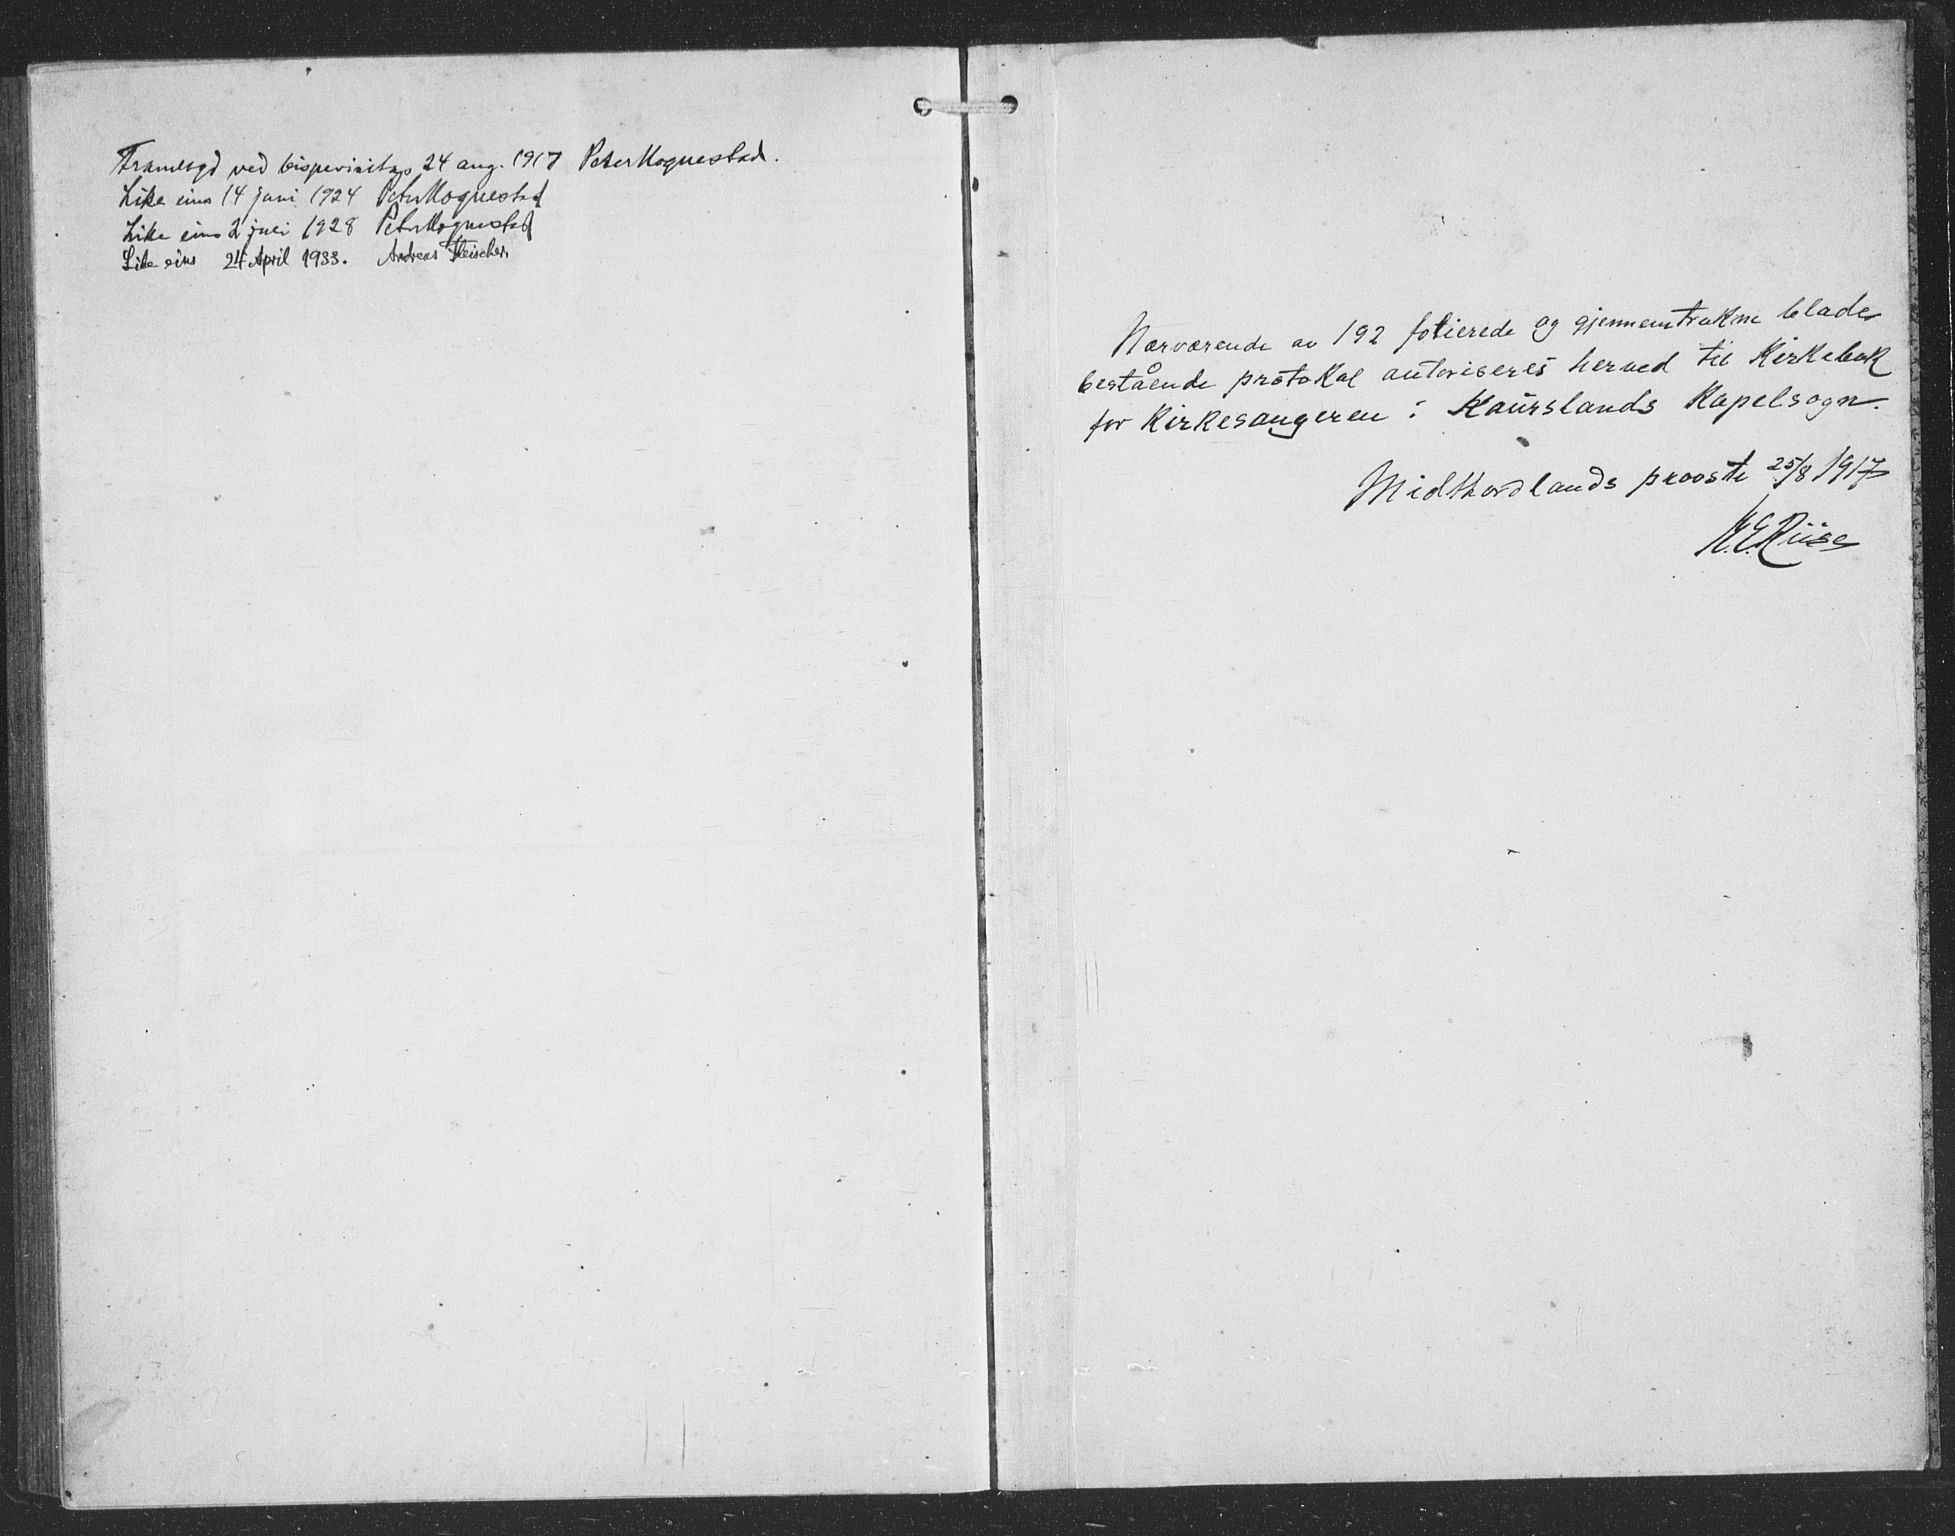 Framlegd ved bispevisitas 24 aug. 1917 Peter Hognestad.
Like eins 14 juni 1924 Peter Hognestad
Like eins 2 juli 1928 Peter Hognestad
Like eins 24 April 1933. Andreas Fleischer.
Nærværende av 192 folierede og gjennemtrukne blade
bestående protokol autoriseres herved til Kirkebok
for Kirkesangeren i Kaurslands Kapelsogn.
Midthordlands provsti 25/8 1917
Riise